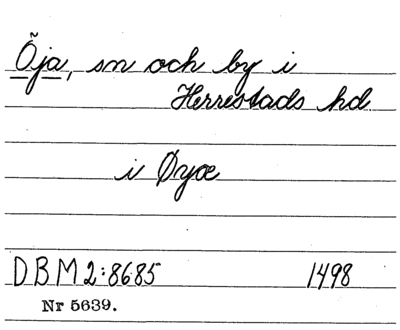 Öja, sn och by i
Herrestads hd
i Øyæ
DBM 2:8685 1498
Nr 5639.